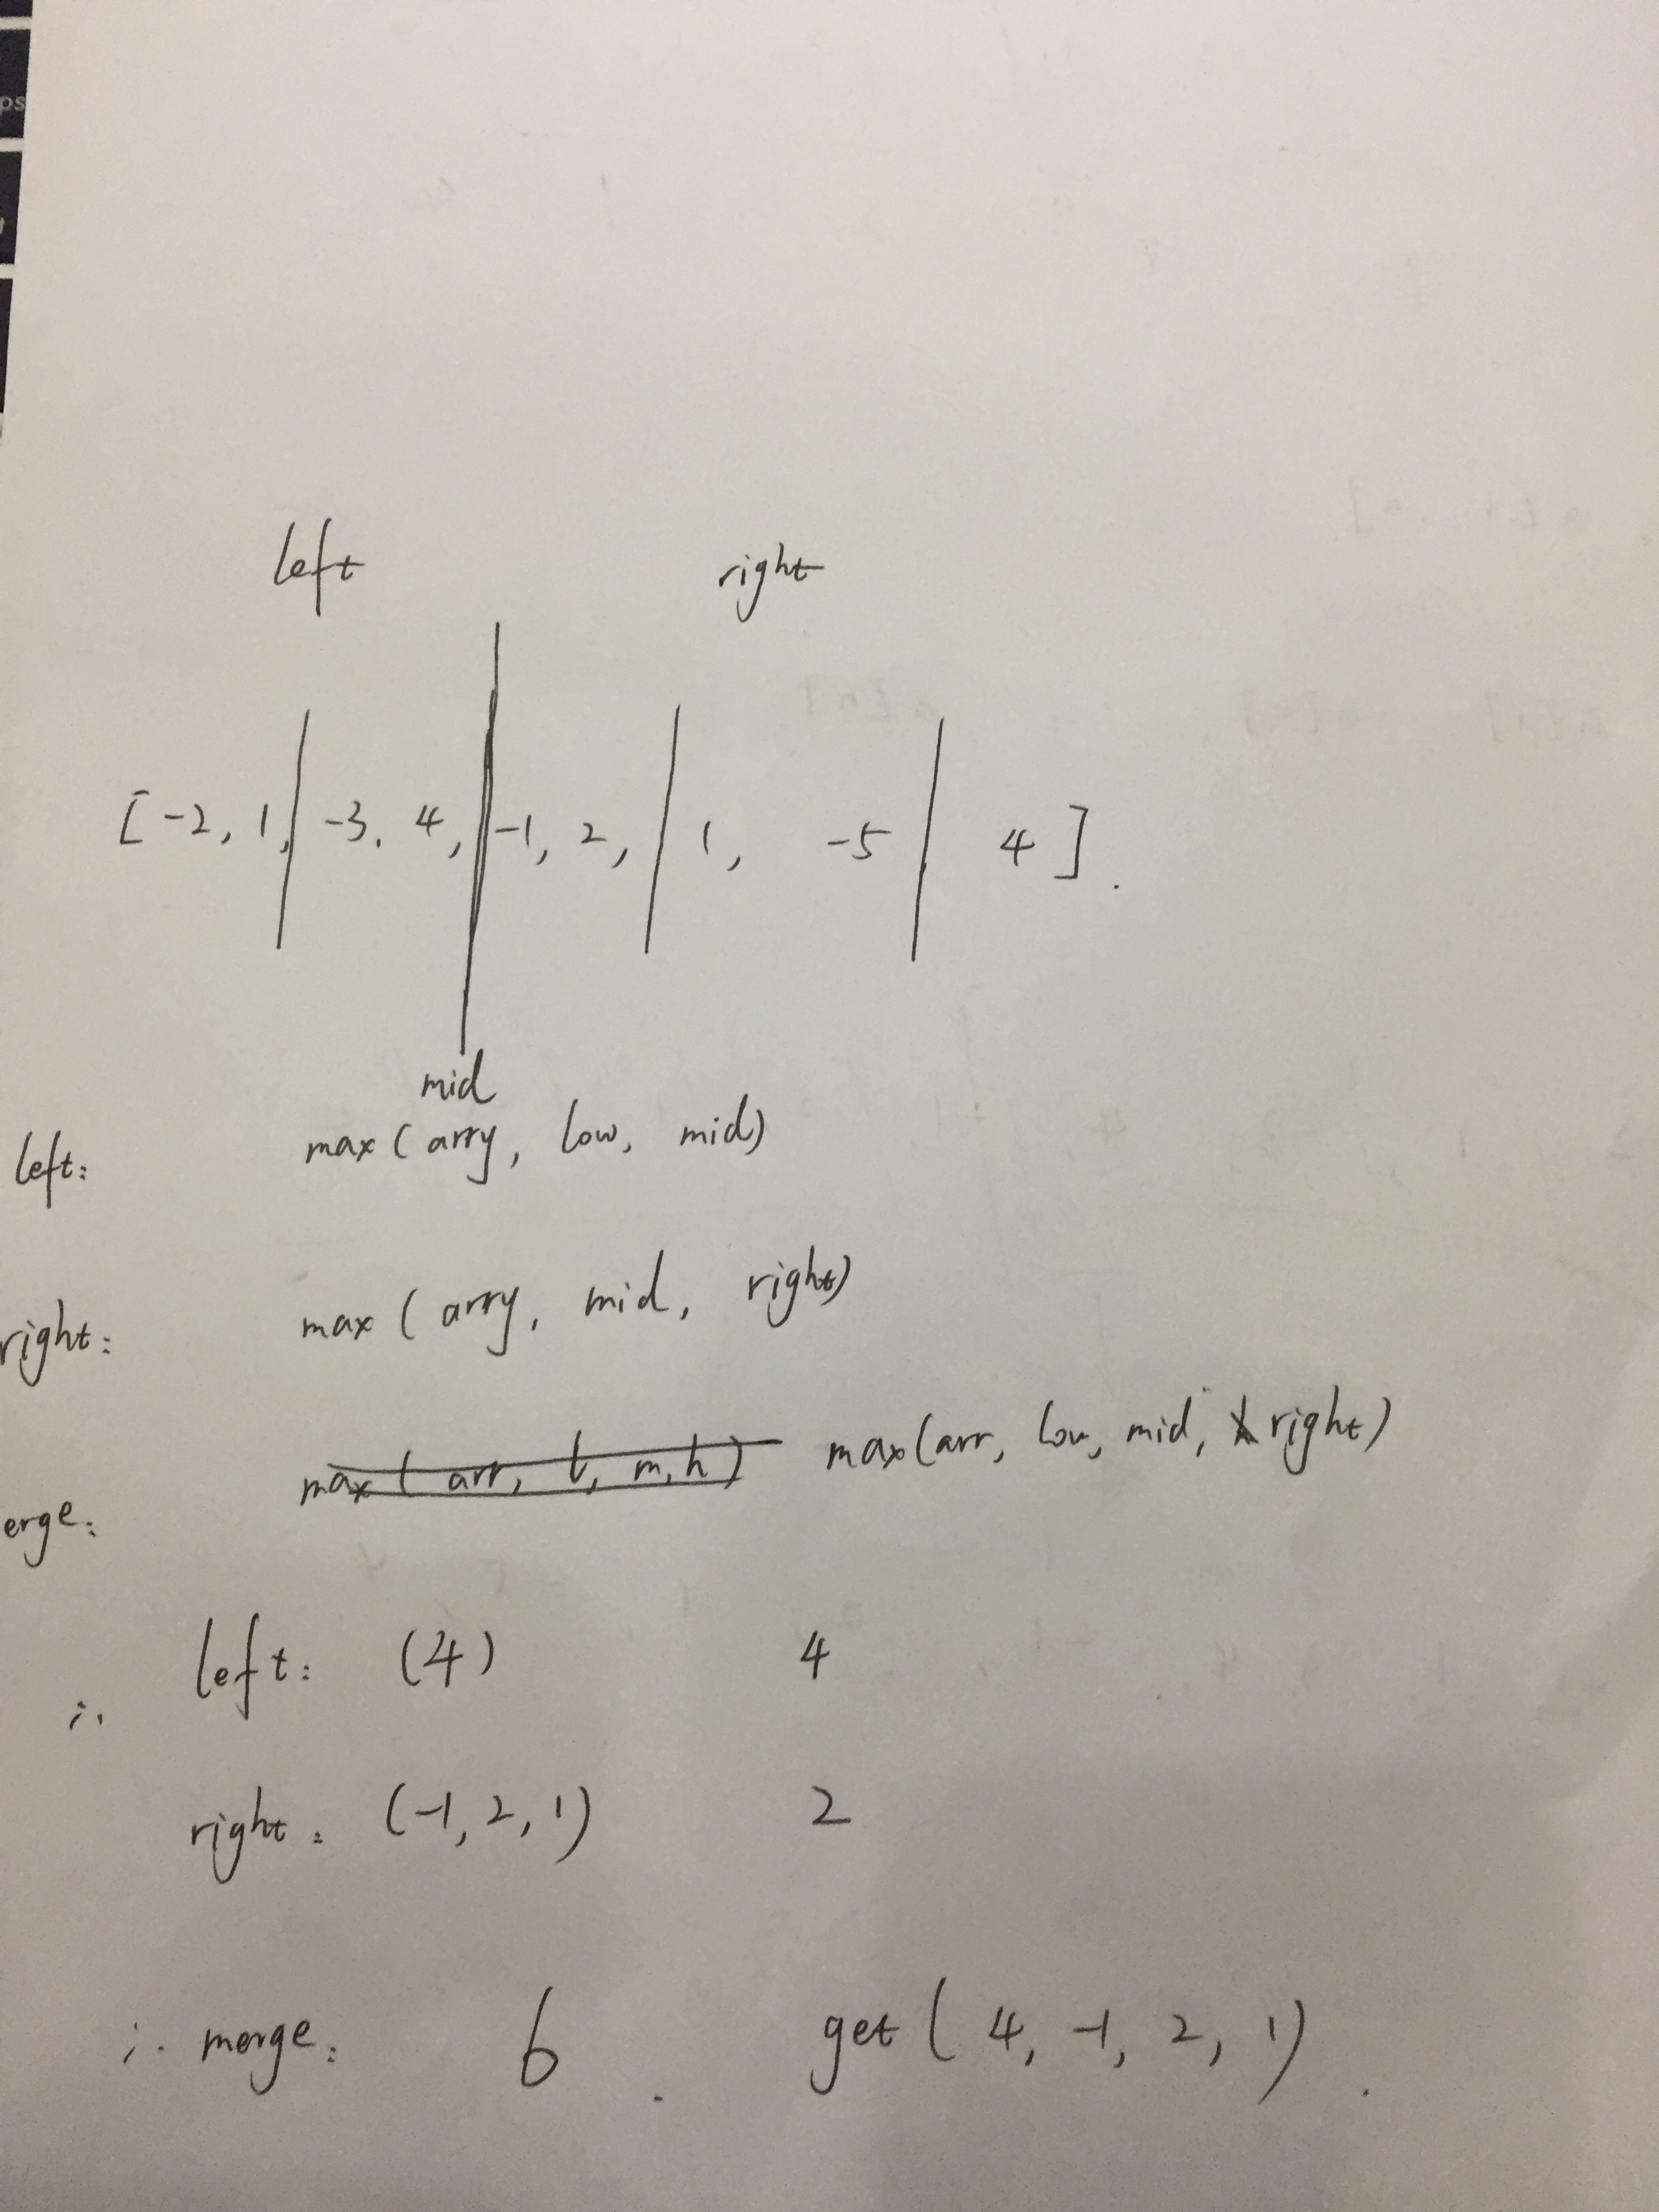 ps
left right
[-2, 1, -3. 4, -1, 2, 1, -5 4].
mid
left: max(arry, low, mid)
right: max(arry, mid, right)
max(arr, l, m, h) max(arr, low, mid, right)
erge:
∴ left: (4) 4
right: (-1, 2, 1) 2
∴ merge: 6. get(4, -1, 2, 1).